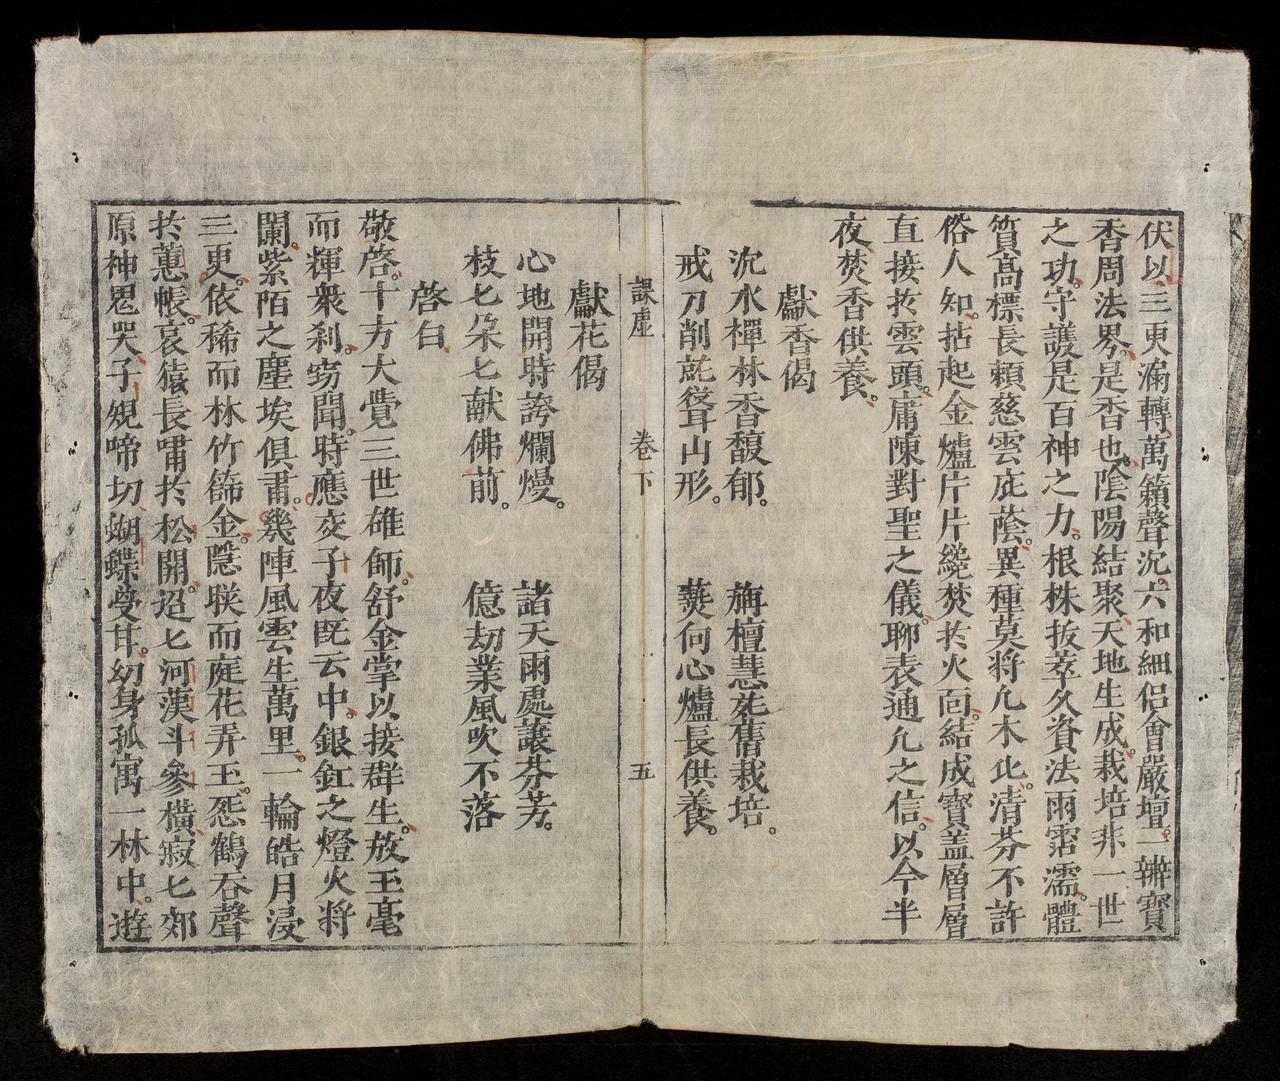 伏以三更漏轉萬籟聲沉。六和細侶會嚴壇。一瓣寶
香周法界。是香也。陰陽結聚。天地生成。栽培非一世
之功。守護是百神之力。根株拔萃久資法雨霑濡。體
質高標長賴慈雲庇蔭。異種莫將凢木比。清芬不許
俗人知。拈起金爐片片纔焚扵火面。結成寶盖層層
直接扵雲頭。庸陳對聖之儀。聊表通凢之信。以今半
夜。焚香供養。
獻香偈
沉水樿林香馥郁。 旃檀慧苑舊栽培。
戒刀削就聳山形。 爇向心爐長供養。
課虛 卷下 五
獻花偈
心地開時誇爛熳。 諸天雨處讓芬芳。
枝匕朶匕献佛前。 億劫業風吹不落
啓白
敬啓。十方大覺三世雄師。舒金掌以接群生。放玉毫
而輝衆刹。窃聞。時應交子夜既云中。銀釭之燈火将
闌。紫陌之塵埃俱肅。幾陣風雲生萬里。一輪皓月浸
三更。依稀而林竹篩金。隱联而庭花弄玉。怨鶴吞聲
扵蕙帳。哀猿長嘯扵松開。迢匕河漢斗參橫。寂匕郊
原神鬼哭。子規啼切。蝴蝶受甘。幻身孤寓一林中。遊